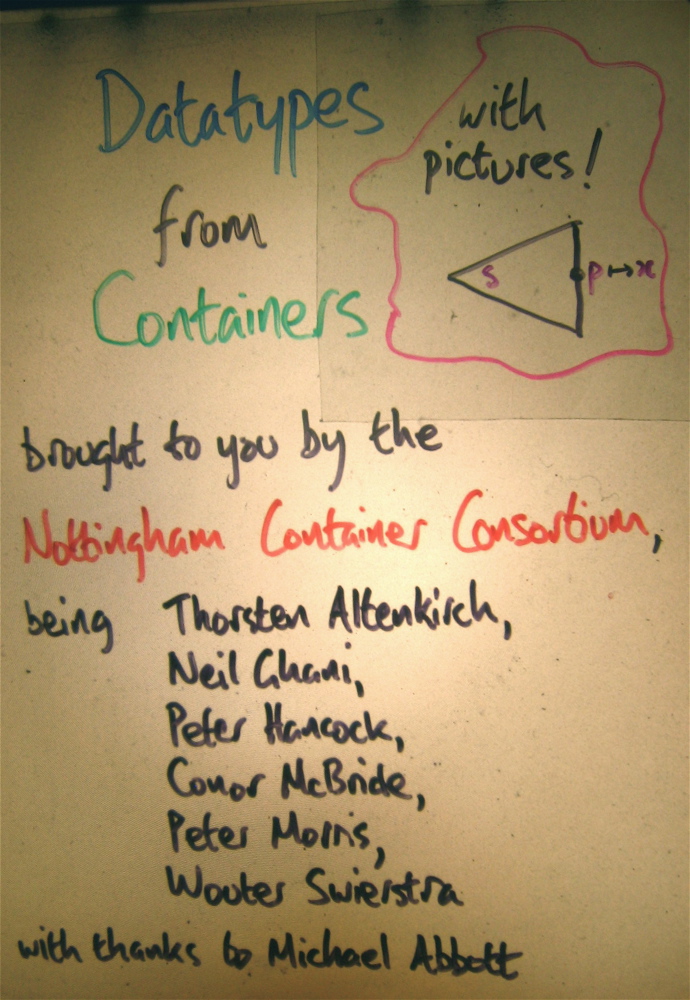 Datatypes
from
Containers
with
pictures!
s p ↦ x
brought to you by the
Nottingham Container Consortium,
being Thorsten Altenkirch,
Neil Ghani,
Peter Hancock,
Conor McBride,
Peter Morris,
Wouter Swierstra
with thanks to Michael Abbott